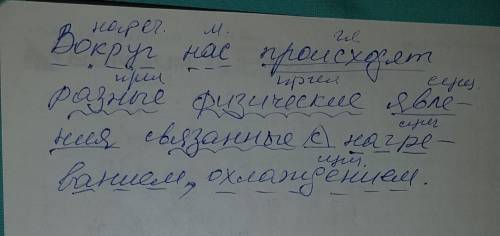 нареч. м. гл
Вокруг нас происходят
прил прил сущ
разные физические явле-
сущ
ния связанные с нагре-
сущ.
ванием, охлаждением.